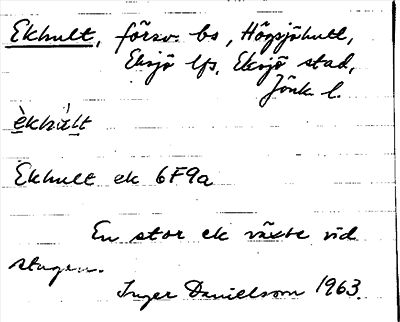 Ekhult, försv. bs, Högsjöhult,
Eksjö lfs, Eksjö stad,
Jönk. l.
èkhùlt
Ekhult ek 6F9a
En stor ek växte vid
stugan.
Inger Danielsson 1963.